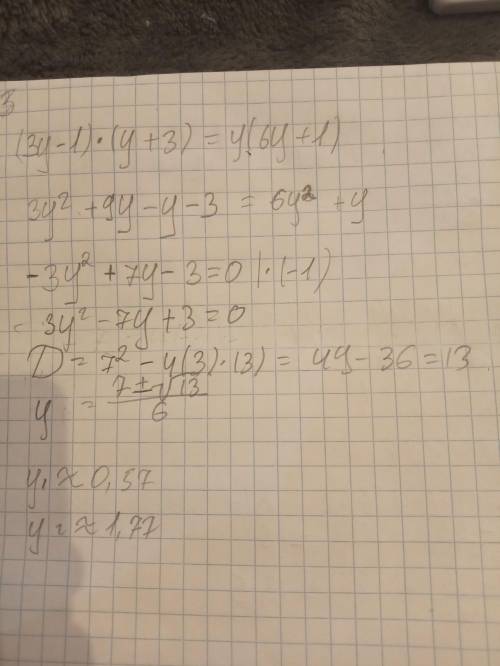 3
(3y-1)·(y+3)=y(6y+1)
3y²+9y-y-3=6y²+y
-3y²+7y-3=0 |·(-1)
3y²-7y+3=0
D=7²-4(3)·13)=49-36=13
y=7±√13/6
y₁≈0,57
y₂≈1,77